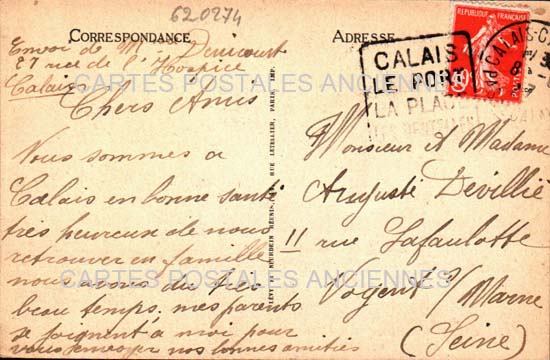 620274
CORRESPONDANCE
ADRESSE
REPUBLIQUE FRANÇAISE
CALAIS
LE PORT
LA PLAGE
Envoi de M
27 rue de l'Hospice
Calais
Chers Amis
Nous sommes a
Calais en bonne santé
très heureux de nous
retrouver en famille
nous avons du très
beau temps. mes parents
se joignent a moi pour
vous envoyer nos bonnes amitiés
LEVY ET NEURDEIN REUNIS, RUE LETELLIER, PARIS, IMP.
Monsieur et Madame
Auguste Dévillié
11 rue Lafaulotte
Nogent s/ Marne
(Seine)
CARTES POSTALES ANCIENNES
CARTES POSTALES ANCIENNES